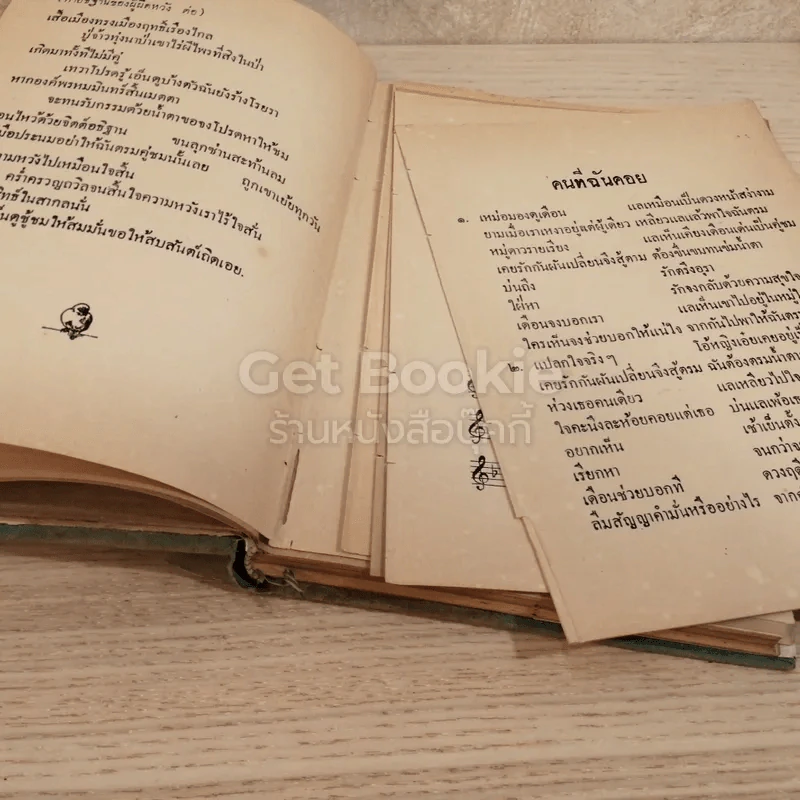 (คำอธิษฐานของผู้ผิดหวัง ต่อ)
เสื้อเมืองทรงเมืองฤทธิ์เรืองไกล
ปู่จ้าวทุ่งนาป่าเขาไร่ผีไพรที่สิงในป่า
เกิดมาทั้งทีไม่มีคู่
เทวาโปรดรู้ เอ็นดูบ้างตัวฉันยังร้างโรยรา
หากองค์พรหมมินทร์สิ้นเมตตา
จะทนรับกรรมด้วยน้ำตาขอจงโปรดหาให้ชม
ไหว้ด้วยจิตต์อธิฐาน ขนลุกซ่านสะท้านลม
ประนมอย่าให้ฉันตรมคู่ชมนั้นเลย ถูกเขาเย้ยทุกวัน
ความหวังไปเหมือนใจสิ้น
คร่ำครวญถวิลจนสิ้นใจความหวังเราไร้ใจสั่น
ในสากลนั่น
ชู้ชมให้สมมั่นขอให้สบสันต์เถิดเอย.
คนที่ฉันคอย
๑. เหม่อมองดูเดือน แลเหมือนเป็นดวงหน้าสง่างาม
ยามเมื่อเราเหงาอยู่แต่ผู้เดียว เหลียวแลแล้วพาใจฉันตรม
หมู่ดาวรายเรียง แลเห็นเคียงเดือนเด่นเป็นคู่ชม
เคยรักกันผันเปลี่ยนจึงสู้ตาม ต้องขื่นขมทนช่มน้ำตา
บ่นถึง รักตรึงอุรา
ใฝ่หา รักจงกลับด้วยความสุขใจ
เดือนจงบอกเรา แลเห็นเขาไปอยู่ในหมู่
ใครเห็นจงช่วยบอกให้แน่ใจ จากกันไปพาให้ฉันตรม
๒. แปลกใจจริง ๆ โอ้หญิงเอ๋ยเคยอยู่
เคยรักกันผันเปลี่ยนจึงสู้ตรม ฉันต้องตรมน้ำตา
ห่วงเธอคนเดียว แลเหลียวไป
ใจคะนึงละห้อยคอยแต่เธอ บ่นแลเพ้อ
อยากเห็น เช้าเย็น
เรียกหา จนกว่า
เดือนช่วยบอกที ดวง
ลืมสัญญาคำมั่นหรืออย่างไร จาก
Get Bookie
ร้านหนังสือบุ๊คกี้